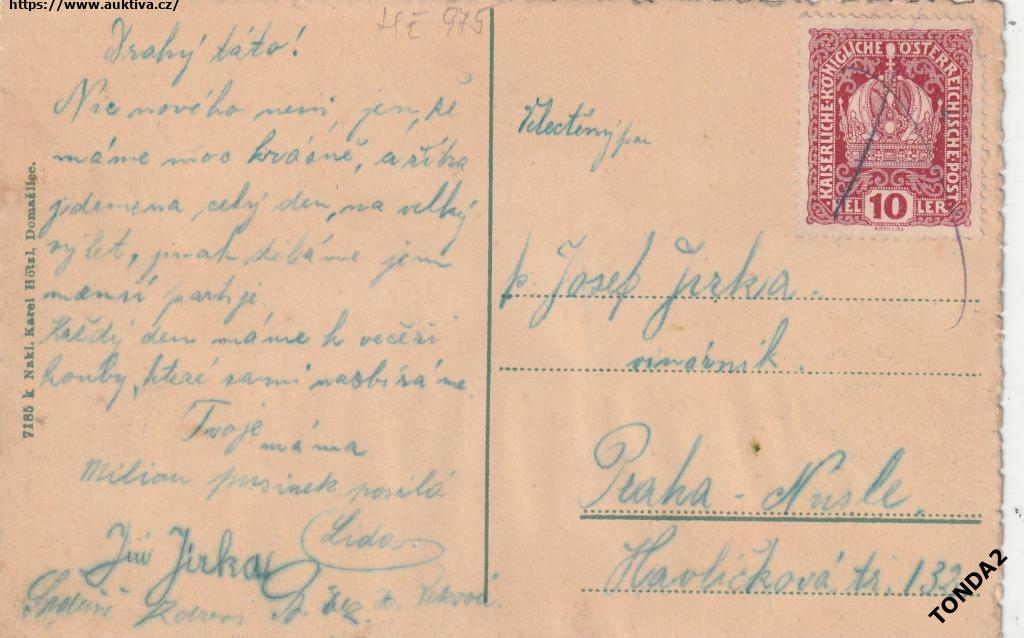 https://www.auktiva.cz/
975
Drahý táto!
Nic nového není, jen, že
máme moc krásně, a zítra
jdeme na celý den, na velký
výlet, jinak děláme jen
menší partije.
Každý den máme k večeři
houby, které sami nasbíráme.
Tvoje máma
Milion pusinek posílá
Lída
Jiří Jirka
7185 k Nakl. Karel Hötzl, Domažlice.
KAISERLICHE KÖNIGLICHE ÖSTERREICHISCHE POST
HELLER
10
Velectěný pan
p. Josef Jirka.
vinárník.
Praha - Nusle.
Havlíčková tř. 132
TONDA2